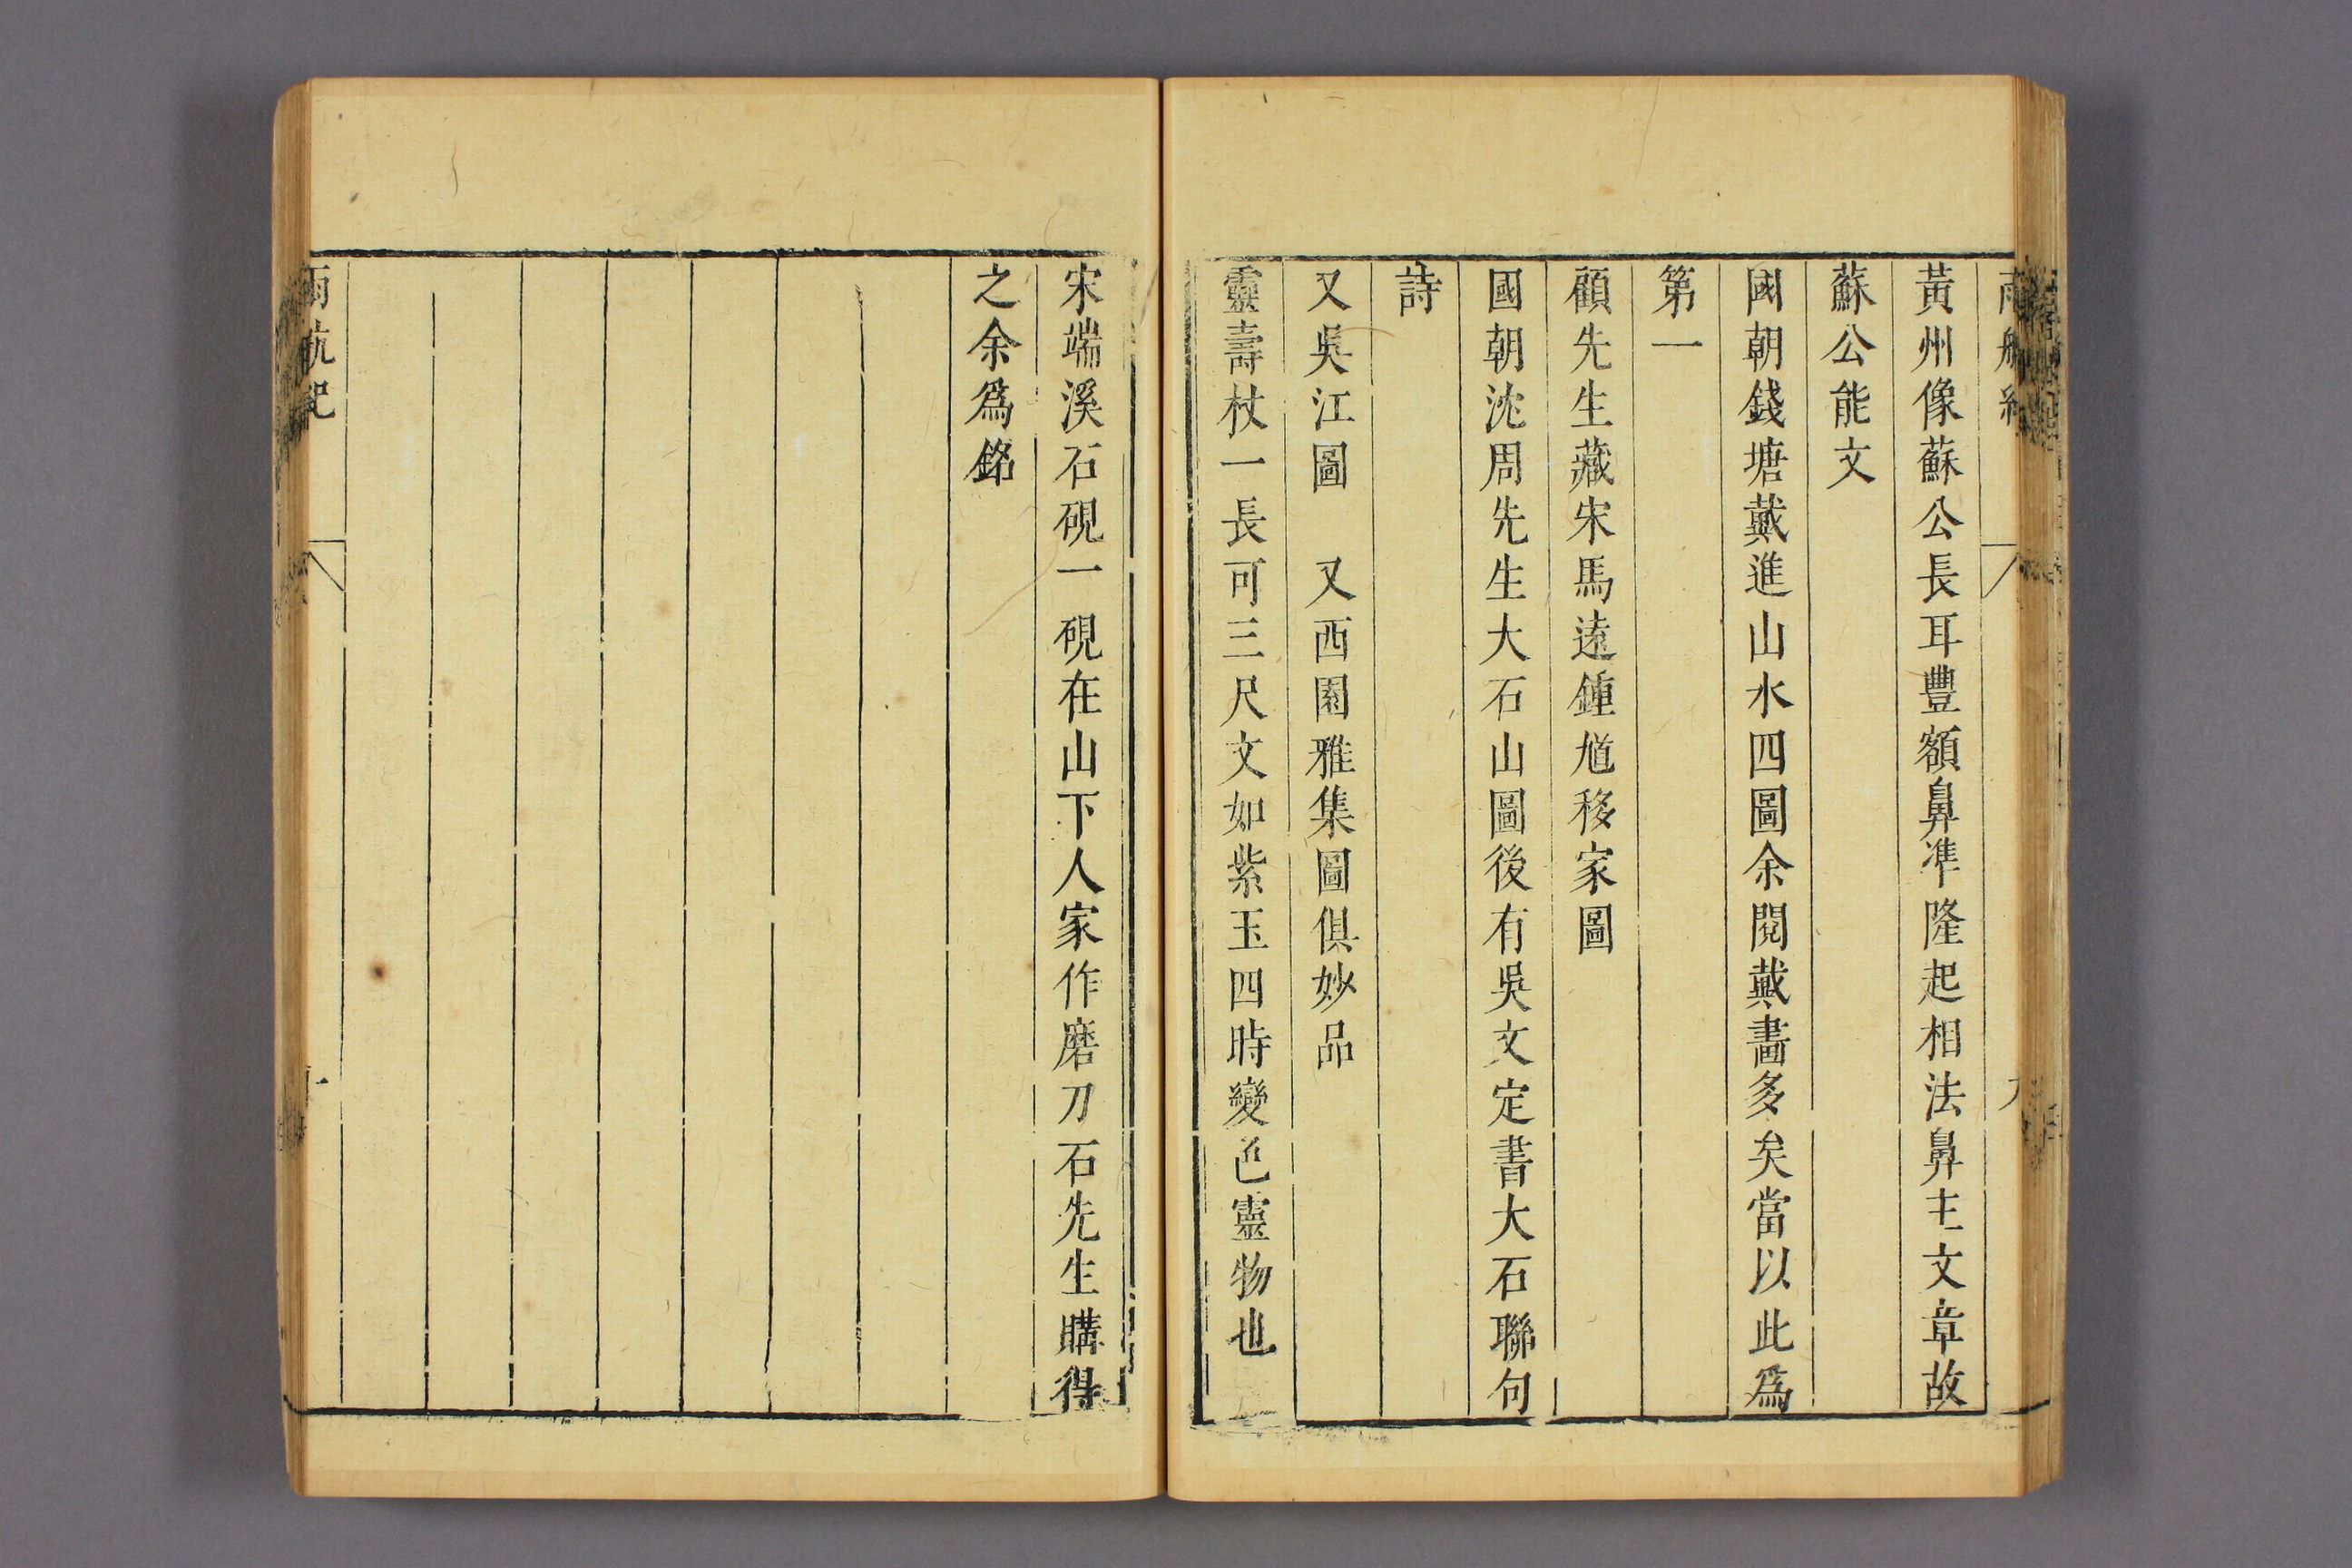 黃州像蘇公長耳豐額鼻準隆起相法鼻主文章故
蘇公能文
國朝錢塘戴進山水四圖余閱戴畫多矣當以此爲
第一
顧先生藏宋馬遠鍾馗移家圖
國朝沈周先生大石山圖後有吳文定書大石聯句
詩
又吳江圖　又西園雅集圖俱妙品
靈壽杖一長可三尺文如紫玉四時變色靈物也
宋端溪石硯一硯在山下人家作磨刀石先生購得
之余爲銘
雨航記